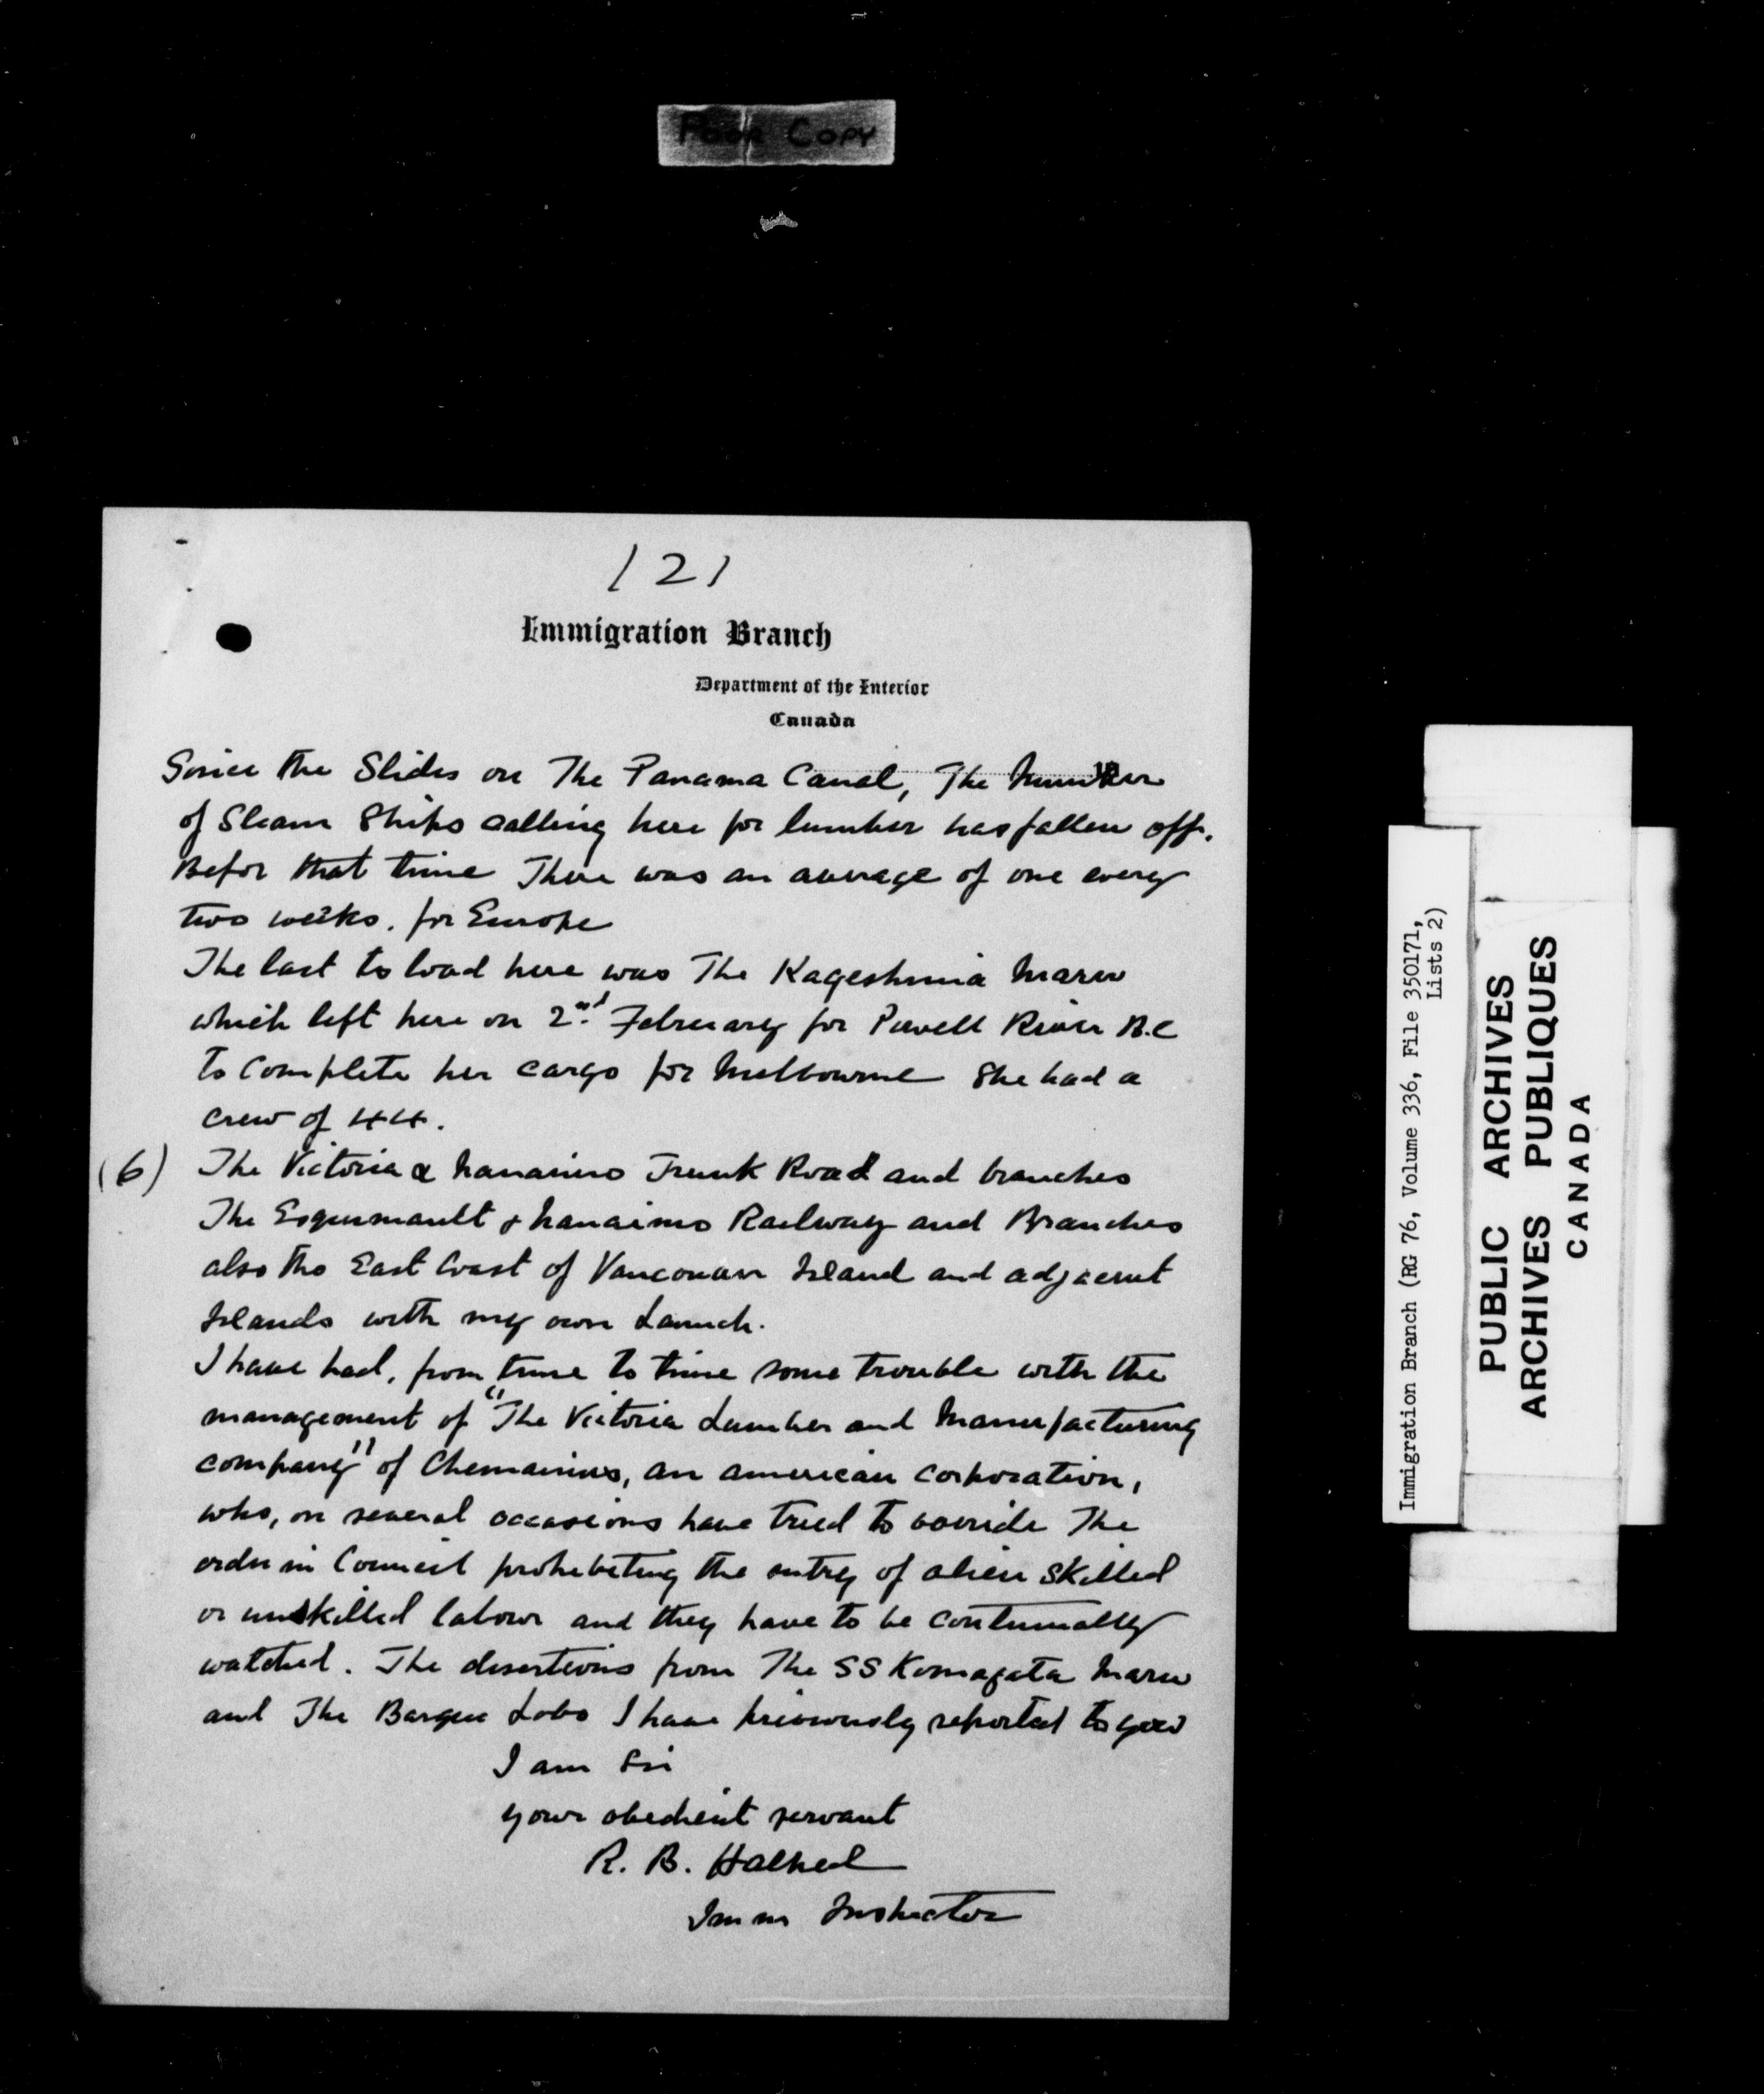 POOR COPY
(2)
Immigration Branch
Department of the Interior
Canada
Since the Slides on The Panama Canal, The Number
of Steam Ships calling here for lumber has fallen off.
Befor that time There was an average of one every
two weeks. for Europe
The last to load here was The Kageshima Maru
which left here on 2nd February for Powell River B.C
to Complete her cargo for Melbourne She had a
crew of 44.
(6) The Victoria & Nanaimo Trunk Road and branches
The Esquimault & Nanaimo Railway and Branches
also the East Coast of Vancouver Island and adjacent
Islands with my own Launch.
I have had, from time to time some trouble with the
management of "The Victoria Lumber and Manufacturing
company" of Chemainus, an american corporation,
who, on several occasions have tried to override The
order in Council prohibiting the entry of alien skilled
or unskilled labour and they have to be continually
watched. The desertions from The SS Komagata Maru
and The Barque Lobo I have previously reported to you
I am Sir
your obedient servant
R. B. Halhed
Imm Inspector
Immigration Branch (RG 76, Volume 336, File 350171,
Lists 2)
PUBLIC ARCHIVES
ARCHIVES PUBLIQUES
CANADA